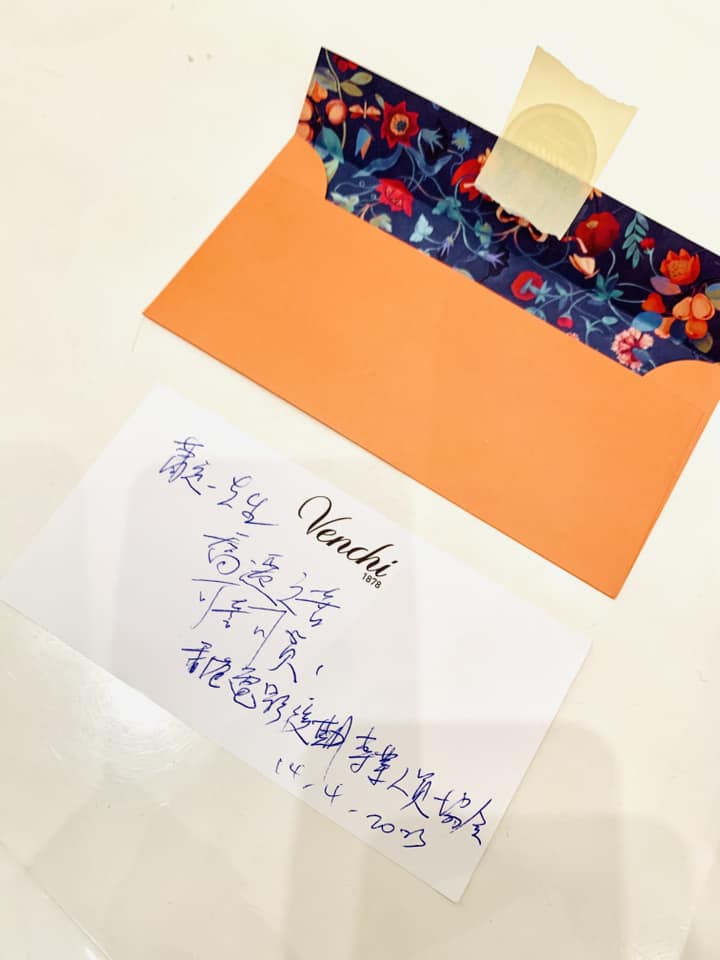 蕭定一先生
Venchi
1878
喬遷之喜
可喜可賀！
香港電影後勤專業人員協會
14-4-2023